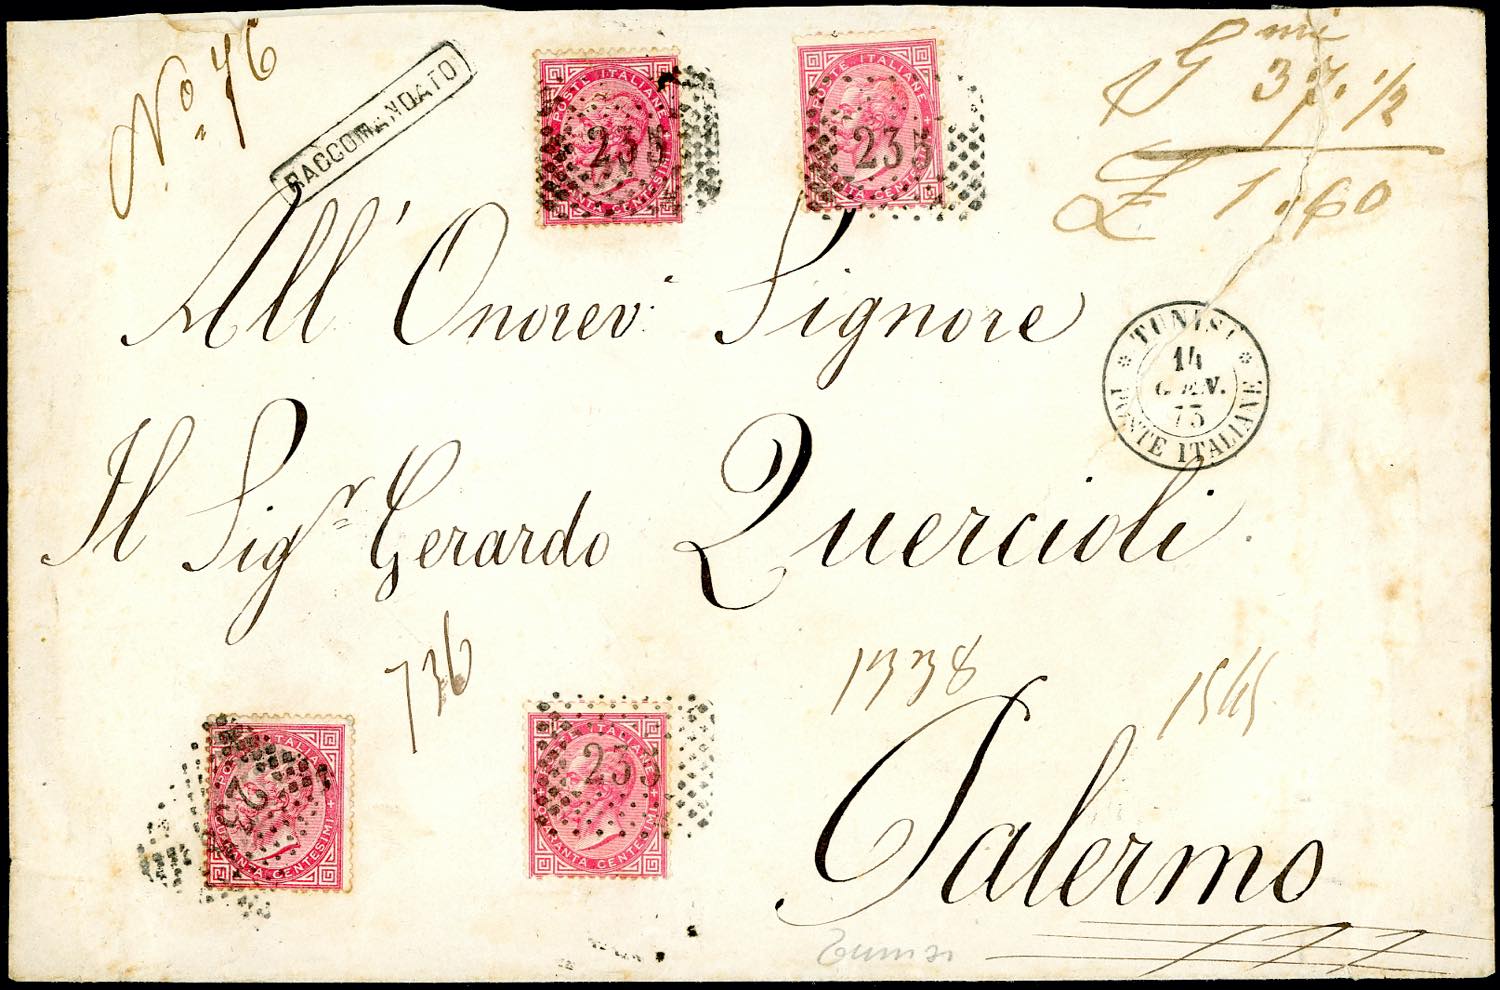 No. 76
RACCOMANDATO
Gmi 37. 1/2
£ 1.60
POSTE ITALIANE
QUARANTA CENTESIMI
235
POSTE ITALIANE
QUARANTA CENTESIMI
235
All' Onorev. Signore
TUNISI
14
GEN.
73
POSTE ITALIANE
Il Sigr Gerardo Quercioli.
736
1338
POSTE ITALIANE
QUARANTA CENTESIMI
23
POSTE ITALIANE
QUARANTA CENTESIMI
235
Palermo
Tunisi